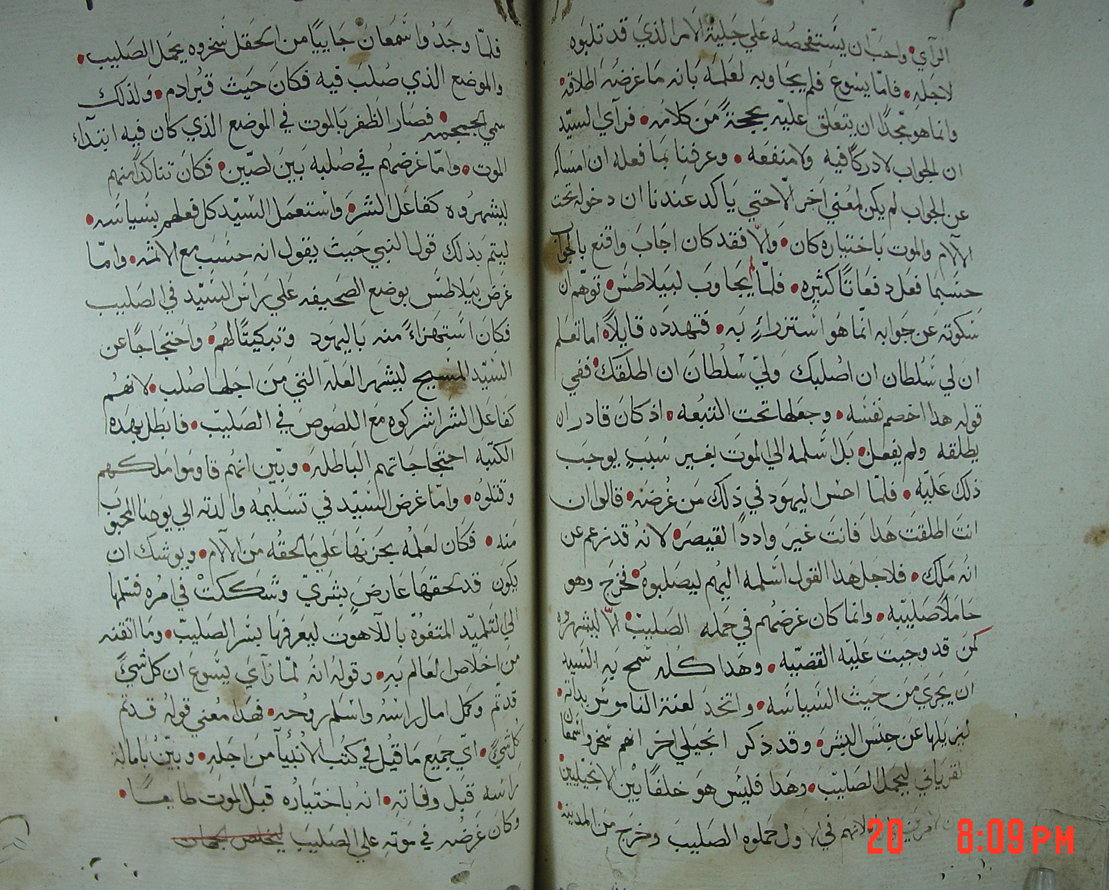 الرآي واحب ان يستفحصه علي جلية الامر الذي قد تلبوه
لاجله • فاما يسوع فلم يجاوبه لعلمه بانه ما غرضه اطلاقه
وانما هو مجدًا ان يتعلق عليه بحجةً من كلامه • فرآي السيد
ان الجواب لا درك فيه ولا منفعه • وعرفنا بما فعله ان امساكه
عن الجواب لم يكن لمعني اخر الّا حتي ياكد عندنا ان دخوله تحت
الآلام والموت باختياره كان • والّا فقد كان اجاب واقنع بالجواب
حسبما فعل دفعاتًا كثيره • فلما لم يجاوب لبيلاطس • توهم ان
سكوته عن جوابه انما هو استزراءٍ به • فتهدده قايلًا اما تعلم
ان لي سلطان ان اصلبك ولي سلطان ان اطلقك • ففي
قوله هذا اخصم نفسه • وجعلها تحت التبعه • اذ كان قادر ان
يطلقه ولم يفعل • بل سلمه الي الموت بغير سببٍ يوجب
ذلك عليه • فلما احس اليهود في ذلك من غرضه • قالوا ان
انت اطلقت هذا فانت غير واددًا لقيصر • لانه قد زعم عن
انه ملك • فلاجل هذا القول اسلمه اليهم ليصلبوه • فخرج وهو
حاملًا صليبه • وانما كان غرضهم في حمله الصليب الّا ليشهروه
كمن قد وجبت عليه القضيه • وهذا كله سمح به السيد
ان يجري من حيث السياسه • واتخد لعنة الناموس بداته •
ليزيلها عن جنس البشر • وقد ذكر انجيلي اخر انهم سخروا سمعان
القرياني ليحمل الصليب • وهذا فليس هو خلفًا بين الانجيليين
لانهم في الاول حملوه الصليب وخرج من المدينه
فلما وجدوا سمعان جاييًا من الحقل سخروه بحمل الصليب •
والموضع الذي صلب فيه فكان حيث قبر ادم • ولذلك
سمي الجمجمه • فصار الظفر بالموت في الموضع الذي كان فيه ابتداء
الموت • واما غرضهم في صلبه بين لصين • فكان تناكدًا منهم
ليشهروه كفاعل الشر • واستعمل السيد كل فعلهم بسياسه •
ليتم بذلك قول النبي حيث يقول انه حسب مع الاثمه • وامّا
غرض بيلاطس بوضع الصحيفه علي راس السيد في الصليب
فكان استهزاءً منه باليهود وتبكيتًا لهم • واحتجاجًا عن
السيد المسيح ليشهر العله التي من اجلها صلب • لانهم
كفاعل الشر اشركوه مع اللصوص في الصليب • فابطل بهده
الكتبه احتجاجاتهم الباطله • وبين انهم قاوموا ملكهم
وقتلوه • واما غرض السيد في تسليمه والدته الي يوحنا المحبوب
منه • فكان لعلمه بحزنها علي ما لحقه من الآلام • ويوشك ان
يكون قد لحقها عارضٍ بشري وشككت في امره فسلمها
الي التلميد المتفوه باللاهوت ليعرفها بسر الصليب • وما اتقنه
من اخلاص العالم به • وقوله انه لما رآي يسوع ان كل شيً
قد تم وكمل امال راسه واسلم روحه • فهذا معني قوله قد تم
كل شيً • اي جميع ما قيل في كتب الانبيآ من اجله • وبين بامالة
راسه قبل وفاته • انه باختياره قبل الموت طايعًا •
وكان غرضه في موته علي الصليب
20 8:09 PM